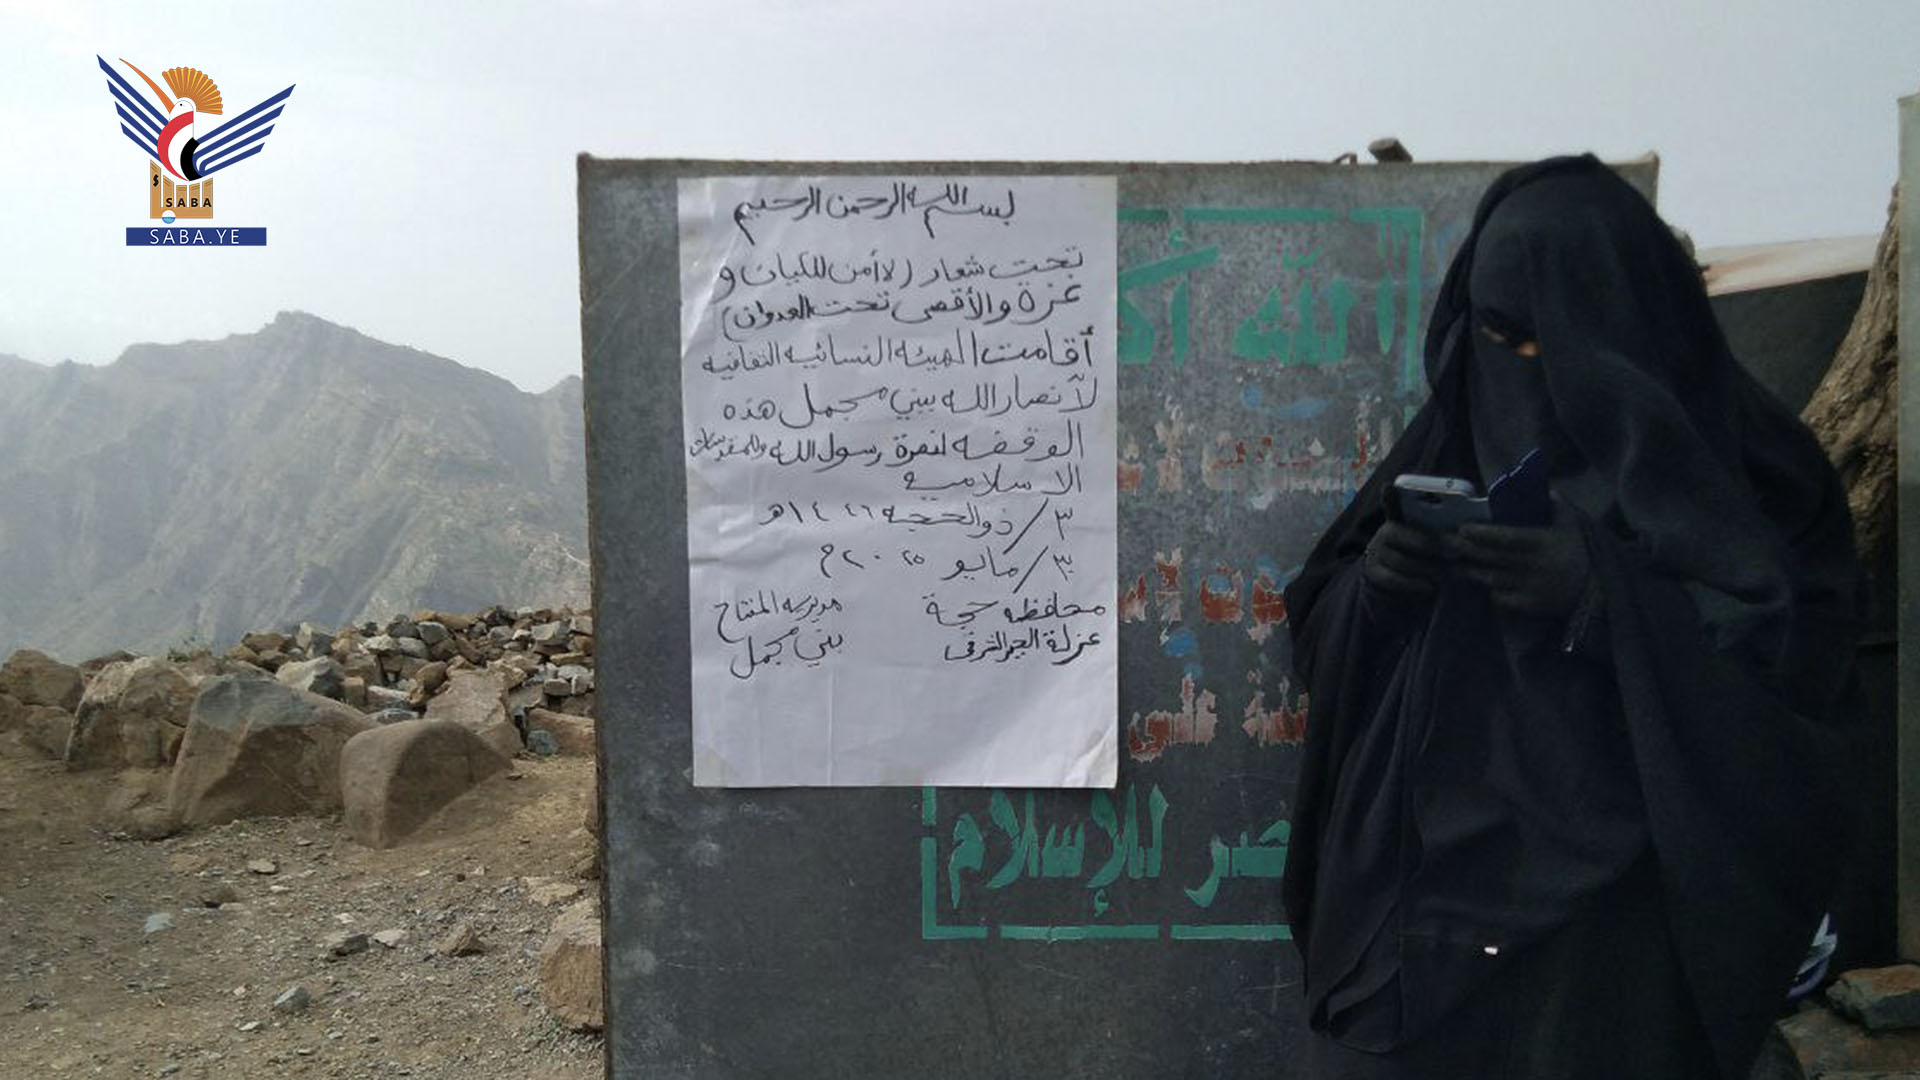 SABA
SABA.YE
بسم الله الرحمن الرحيم
تحت شعار (لا أمن للكيان و
غزة والأقصى تحت العدوان)
أقامت الهيئه النسائيه الثقافيه
لأنصار الله ببني مجمل هذه
الوقفه لنصرة رسول الله وللمقدسات
الاسلاميه
٣/ ذوالحجه ١٤٤٦هـ
٣٠/ مايو ٢٠٢٥م
محافظه حجة مديريه المفتاح
عزلة الجبر الشرقي بني مجمل
الله
لا
على
للإسلام